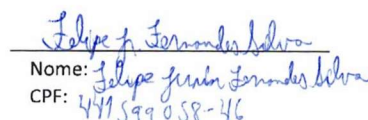 Felipe Jr Fernandes Silva
Nome: Felipe Junior Fernandes Silva
CPF: 447599058-46